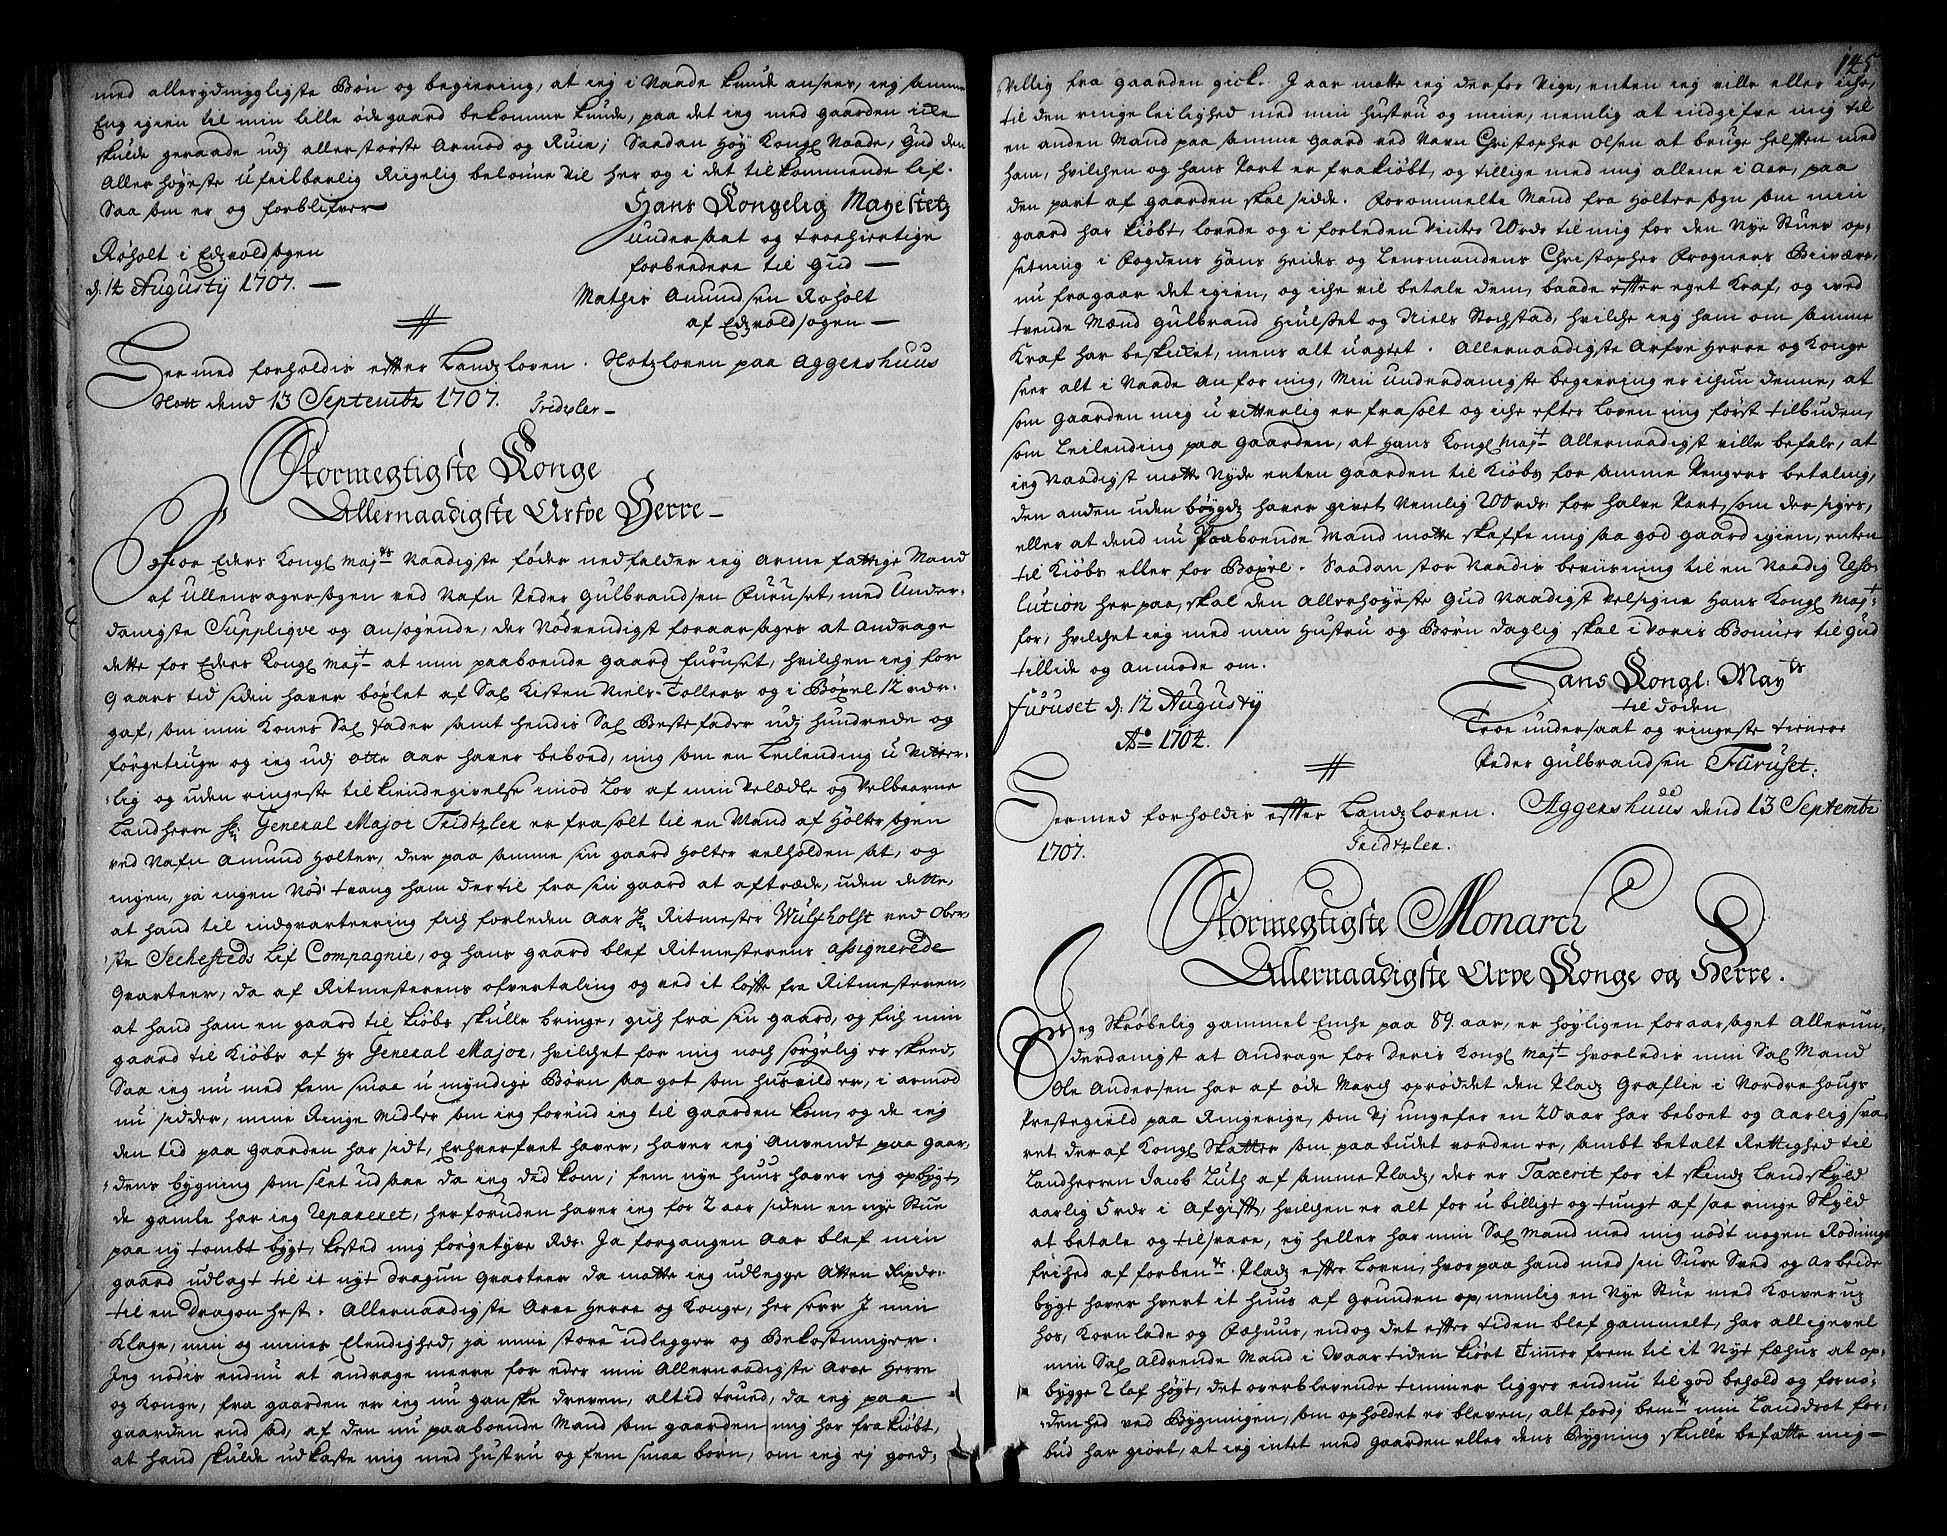 med allerydmygligste Bøn og begiering, at ieg i Naade kunde ansees, ieg samme
Eng igien til min lille øde gaard bekomme kunde, paa det ieg med gaarden icke
skulde geraade udj allerstørste Armod og Ruin; Saadan Høy Kongl Naade, Gud den
Aller høyeste ufeilbarlig Rigelig belønne vil her og i det tilkommende Lif.
Saa som er og forblifver
Hans Kongelig Mayestetz
undersaat og troehiertige
forbedere til Gud —
Røholt i Edzvoldsogen
d: 12 Augusty 1707. —
Mathis Amundsen Røholt
af Edzvoldsogen —
Hermed forholdis efter Landzloven. Slotzloven paa Aggershuus
Slott dend 13 Septembr 1707. Tridtzler —
Stormegtigste Konge
Allernaadigste Arfve Herre —
For Eders Kongl Majts Naadigste føder nedfalder ieg Arme fattige Mand
af Ullensagersogen ved Nafn Peder Gulbrandsen Furuset, med Under-
danigste Suppliqve og Ansøgende, der Nødvendigst foraarsages at Andrage
dette for Eders Kongl Majt at min paaboende gaard furuset, hvilchen ieg for
9 aars tid siden haver bøxlet af Sal Kisten Niels Tollers og i Bøxel 12 rdr
gaf, som min Kones Sal fader samt hendis Sal Bestefader udj hundrede og
førgetiuge og ieg udj otte aar haver beboed, mig som en Leilending uvitter-
lig og uden ringeste tilkiendegivelse imod Lov af min Velædle og Velbaarne
Landherre Hr General Major Tridtzler er frasolt til en Mand af Holter sogen
ved Nafn Amund Holter, der paa samme sin gaard Holter velholden sat, og
ingen, ja ingen Nød tvang ham dertil fra sin gaard at aftræde, uden dette,
at hand til indqvarteering fich forleden Aar Hr Ritmester Wulfholst ved Ober-
ste Seehesteds Lif Compagnie, og hans gaard blef Ritmesterens assignerede
Qvarteer, da af Ritmesterens ofvertaling og ved it løfte fra Ritmesteren,
at hand ham en gaard til kiøbs skulle bringe, gich fra sin gaard, og fich min
gaard til Kiøbs af Hr General Major, hvilchet for mig noch sørgelig er skeed,
Saa ieg nu med fem smaa umyndige Børn saa got som husvild er, i armod
nu sidder, mine Ringe Midler som ieg forend ieg til gaarden kom, og de ieg
den tid paa gaarden har sidt, Erhverfvet haver, haver ieg Anvendt paa gaar-
dens bygning som slet udsaae da ieg did kom; fem nye huus haver ieg opbygt,
de gamle har ieg Reparexet, herforuden haver ieg for 2 aar siden en nye Stue
paa ny tombt bygt, kosted mig førgetyve Rdr. Ja forgangen Aar blef min
gaard udlagt til it nyt dragun Qvarteer da maatte ieg udlegge Atten Rixdr.
til en Dragon hest. Allernaadigste Arve Herre og Konge, her seer I min
Klage, min og mines Elendighed, ja min store udlegger og Bekostninger.
Jeg nødis endnu at andrage meere for eder min Allernaadigste Arve Herre
og Konge, fra gaarden er ieg nu ganske dreven, altid trued, da ieg paa
gaarden end sad, af den nu paaboende Mand som gaarden mig har frakiøbt,
at hand skulde udkaste mig med hustru og fem smaa børn, om ieg ej goed-
145
villig fra gaarden gick. J aar motte ieg derfor Vige, enten ieg ville eller iche,
til den ringe leilighed med min Hustru og mine, nemlig at indgifve mig til
en anden Mand paa samme gaard ved Navn Christopher Olsen at bruge helften med
ham, hvilchen og hans Part er frakiøbt, og tillige med mig allene i Aar, paa
den part af gaarden skal sidde. Forommelte Mand fra Holter sogn som min
gaard har kiøbt, lovede og i forleden Vinter 20 rdr til mig for den Nye Stues op-
setning i Fogdens Hans Heides og Lensmandens Christopher Frogners Bivær-
nu fragaar det igien, og iche vil betale dem, baade efter eget Kraf, og ved
tvende Mænd Gulbrand Hiulset og Niels Stochstad, hvilche ieg ham om samme
Kraf har beskicket, mens alt uagtet. Allernaadigste Arfve Herre og Konge
seer alt i Naade An for mig, Min underdanigste begiering er ichun denne, at
som gaarden mig uvitterlig er frasolt og iche efter loven mig først tilbuden,
som Leilending paa gaarden, at Hans Kongl Majt Allernaadigst ville befale, at
ieg Naadigst motte Nyde enten gaarden til Kiøbs for samme Penges betaling,
den anden uden bøygds haver givet Nemlig 200 rdr for halve Part, som der siges,
eller at dend nu Paaboende Mand motte skaffe mig saa god gaard igien, enten
til Kiøbs eller for Bøxel. Saadan stor Naadis beviisning til en Naadig Reso-
lution her paa, skal den Allerhøyeste Gud Naadigst Velsigne Hans Kongl Majt
for, hvilchet ieg med min Hustru og Børn daglig skal i voris Bønner til Gud
tillide og anmode om.
Hans Kongl: Mayts
til døden
Troe undersaat og ringeste tienere
Peder Gulbrandsen Furuset:
Furuset d: 12 Augusty
Ao 1707.
Hermed forholdis efter Landzloven. Aggershuus dend 13 Septembr
1707. Tridtzler.
Stormegtigste Monarch
Allernaadigste Arve Konge og Herre.
Jeg Skrøbelig gammel Enche paa 89 aar, er høyligen foraarsaget Allerun-
derdanigst at Andrage for Deris Kongl Majt hvorledis min Sal Mand
Ole Andersen har af øde March oprøddet den Pladz Graflie i Nordrehougs
Prestegield paa Ringerige, som Vj ungefer en 20 aar har beboet og aarlig sva-
ret deraf Kongl Skatter som paabudet vorden er, sambt betalt Rettighed til
Landherren Jacob Luth af samme Pladz, der er Taxerit for it skindz Landskyld
aarlig 5 rdr i Afgift, hvilchen er alt for ubilligt og tungt af saa ringe Skyld
at betale og tilsvare, ey heller har min Sal Mand med mig nødt nogen Rødnings
frihed af forbente Pladz efter Loven, hvorpaa hand med sin Sure Sved og Arbeide
bygt haver hvert it huus af grunden op, nemlig en Nye Stue med Kover uz
hos, Kornlade og Fæhuus, endog det efter tiden blef gammelt, har alligevel
min Sal Aldrende Mand i Svaar tiden kiørt Timer frem til it Nyt fæhus at op-
bygge 2 laf høyt, det overblevende timmer ligger endnu til god behold og forno-
denhed ved Bygningen, som opholdet er bleven, alt fordj bemte min Landdrot for-
bud har giort, at ieg intet med gaarden eller dens Bygning skulle befatte mig —